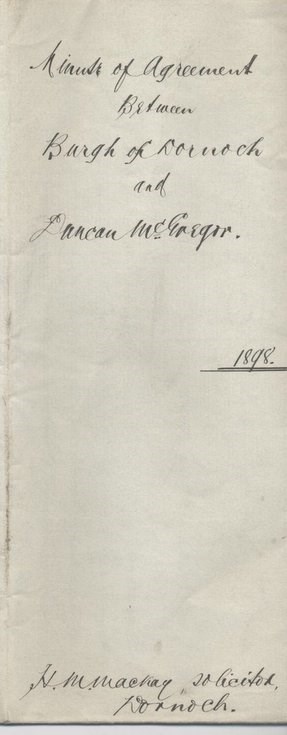 Minute of Agreement
Between
Burgh of Dornoch
and
Duncan McGregor.
1898.
H. M. Mackay, Solicitor,
Dornoch.